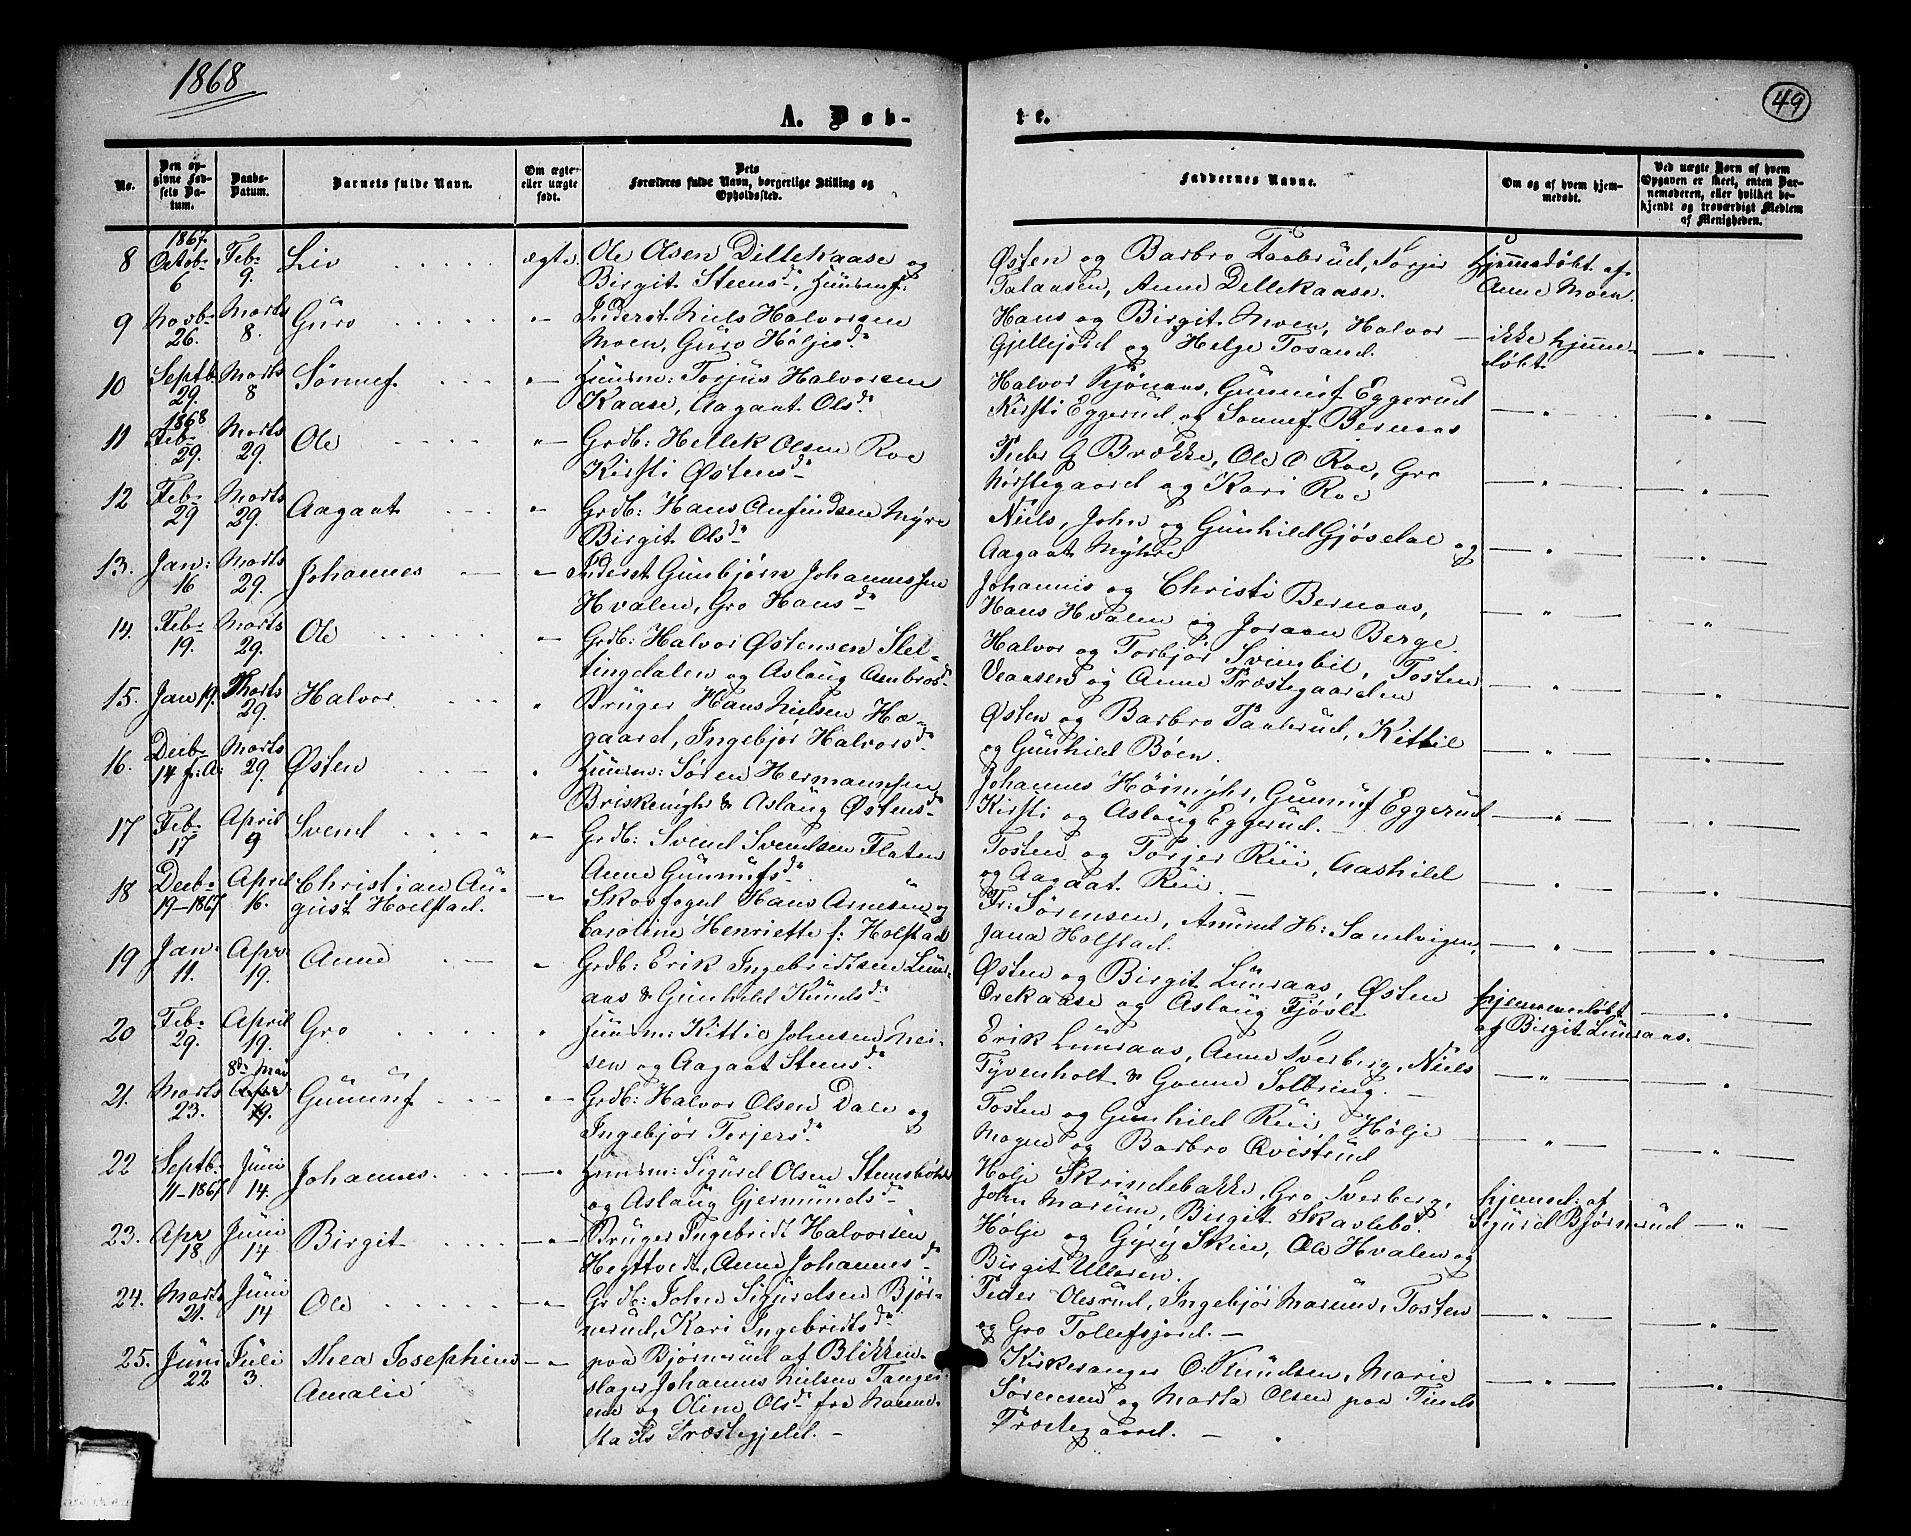 1868
49
A. Døb-
te.
No.
Den op-
givne Fød-
sels Da-
tum.
Daabs-
Datum.
Barnets fulde Navn.
Om ægte-
eller uægte
født.
Dets
Forældres fulde Navn, borgerlige Stilling og
Opholdssted.
Faddernes Navne.
Om og af hvem hjem-
medøbt.
Ved uægte Børn af hvem
Opgaven er skeet, enten Bar-
nemoderen, eller hvilket be-
kjendt og troværdigt Medlem
af Menigheden.
8 1867 Octob- 6 Feb- 9. Liv ægte Ole Olsen Dillekaase og
Birgit Steens d., Huusmf.
Østen og Barbro Taabrud, Torjer
Talaasen, Anne Dellekaase.
Hjemmedøbt af
Anne Moen.
9 Novb- 26. Marts 8. Guro Inderst Niels Halvorsen
Moen, Guro Høljes d.
Hans og Birgit Moen, Halvor
Gjellejord og Helge Tosand.
ikke hjemme-
døbt
10 Septb 29. Marts 8 Sønnef Huusm: Torjus Halvorsen
Kaase, Aagaat Ols d.
Halvor Kjønaas, Gunnuf Eggerud
Kirsti Eggerud og Sonnef Bernaas
11 1868 Feb- 29. Marts 29. Ole Grdb: Hellek Olsen Roe
Kirsti Østens d.
Peder G Brække, Ole O Roe, Gro
Nørstegaard og Kari Roe
12 Feb- 29 Marts 29. Aagaat Grdb: Hans Anfindsen Myre
Birgit Ols d.
Niels, John og Gunhild Gjøsdal og
Aagaat Myhre
13. Jan: 16 Marts 29. Johannes Inderst Gunbjørn Johannessen
Hvalen, Gro Hans d.
Johannis og Christi Bernaas,
Hans Hvalen og Joraan Berge.
14. Feb- 19. Marts 29. Ole Grdb: Halvor Østensen Slet-
tingdalen og Aslaug Ambros d.
Halvor og Torbjør Svimbil, Tosten
Veaasen og Anne Præstegaarden
15. Jan 19. Marts 29. Halvor Bruger Hans Nielsen Hæ-
gaard, Ingebjør Halvors d.
Østen og Barbro Taabrud, Kittil
og Gunhild Bøen.
16. Decb- 14 f: A: Marts 29. Østen Huusm: Søren Hermannsen
Briskemyhr & Aslaug Østens d.
Johannes Høimyhr, Gunnuf Eggerud
Kirsti og Aslaug Eggerud.
17 Feb- 17 April 9 Svend Grdb: Svend Svendsen Flaten
Anne Gunnufs d.
Tosten og Torjer Rui, Aashild
og Aagaat Rui.
18 Decb- 19-1867 April 16. Christian Au-
gust Holstad.
Skovfoged Hans Arnesen og
Caroline Henriette f: Holstad
Fr: Sørensen, Amund H: Sandvigen,
Jana Holstad.
19 Jan- 11. Apr 19. Anne Grdb: Erik Ingebridtsen Lun-
aas & Gunhild Knuds d.
Østen og Birgit Lunaas, Østen
Orekaase og Aslaug Fjøsle
20 Feb- 29. April 19. Gro Huusm: Kittil Johnsen Nei-
sen og Aagaat Steens d.
Erik Lunaas, Anne Sverberg, Niels
Tyvenholt & Gonne Solbring.
hjemmedøbt
af Birgit Lunaas.
21. Marts 23. 8de Mai Apr 19. Gunnuf Grdb: Halvor Olsen Dale og
Ingebjør Torjers d.
Tosten og Gunhild Rui, Hølje
Mogen og Barbro Qvistrud
22 Septb. 11-1867 Juni 14. Johannes. Huusm: Sigurd Olsen Stensbøle
og Aslaug Gjermunds d.
Hølje Skrindebakke, Gro Sverberg,
John Marum, Birgit Skavlebø.
hjemd: af
Sigurd Bjørnerud
23. Apr 18. Juni 14 Birgit Bruger Ingebridt Halvorsen
Hegttvedt, Anne Johannes d.
Hølje og Gyry Skie, Ole Hvalen og
Birgit Ulleren.
24. Marts 21. Juni 14 Ole Grdb: John Sigurdsen Bjør-
nerud, Kari Ingebridts d.
Peder Olesrud, Ingebjør Marum, Tosten
og Gro Tollefsjord.
25. Juni 22 Juli 3. Thea Josephine
Amalie
paa Bjørnerud af Blikken-
slager Johannes Nielsen Tange-
ene og Oline Ols d. fra Nanne-
stads Præstegjeld.
Kirkesanger O: Knudsen, Marie
Sørensen og Marta Olsen paa Tinds
Præstegaard.